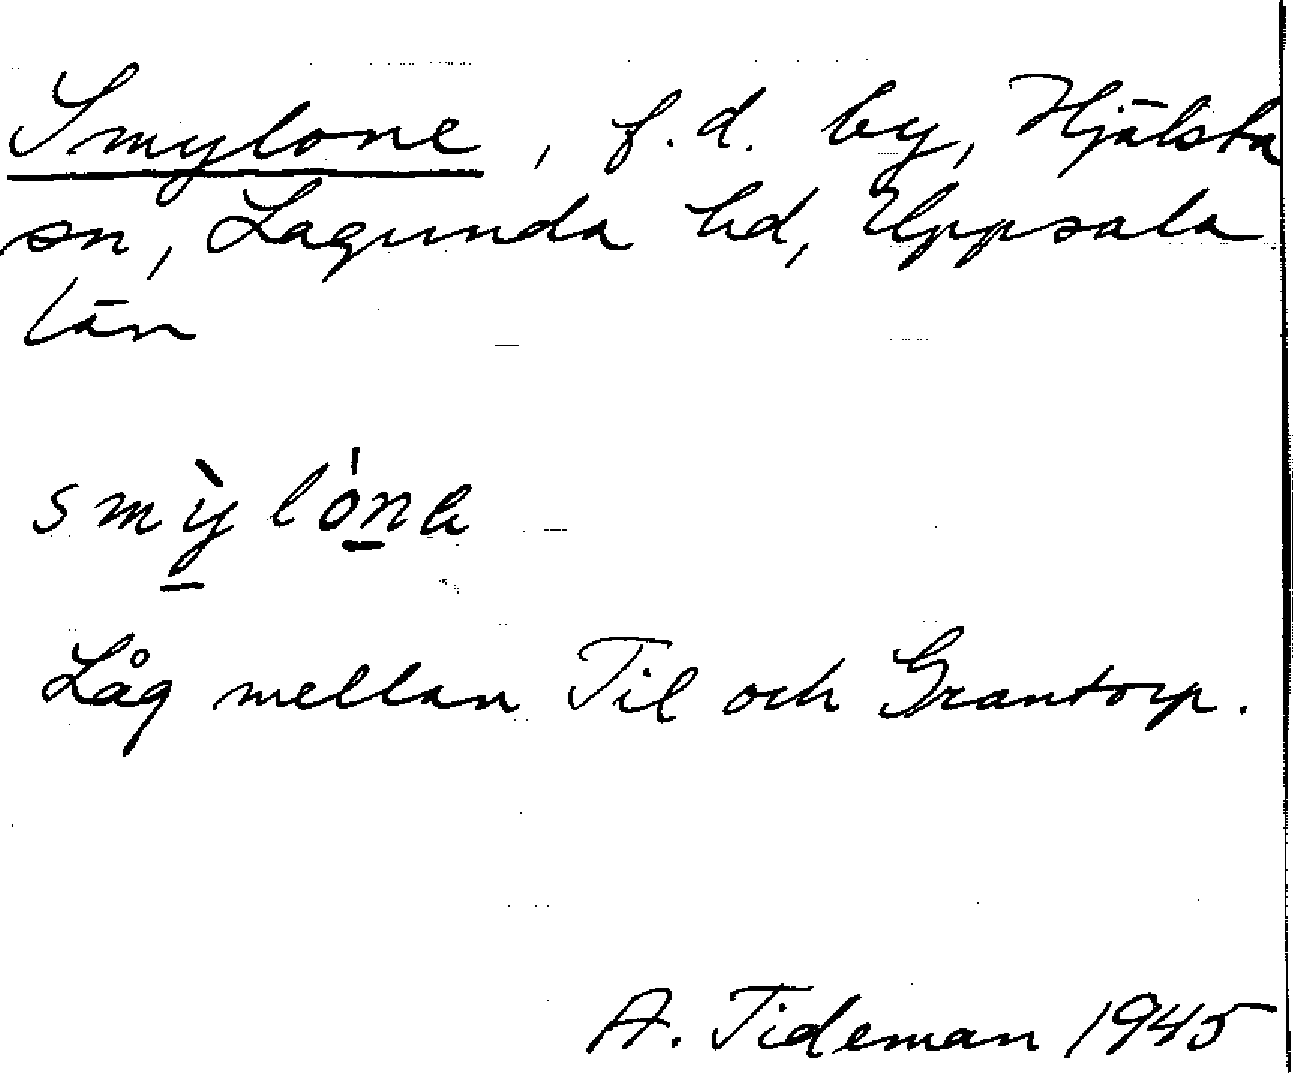 Smylone, f.d. by, Hjälsta
sn, Lagunda hd, Uppsala
län
smỳlónе
Låg mellan Til och Grantorp.
A. Tideman 1945